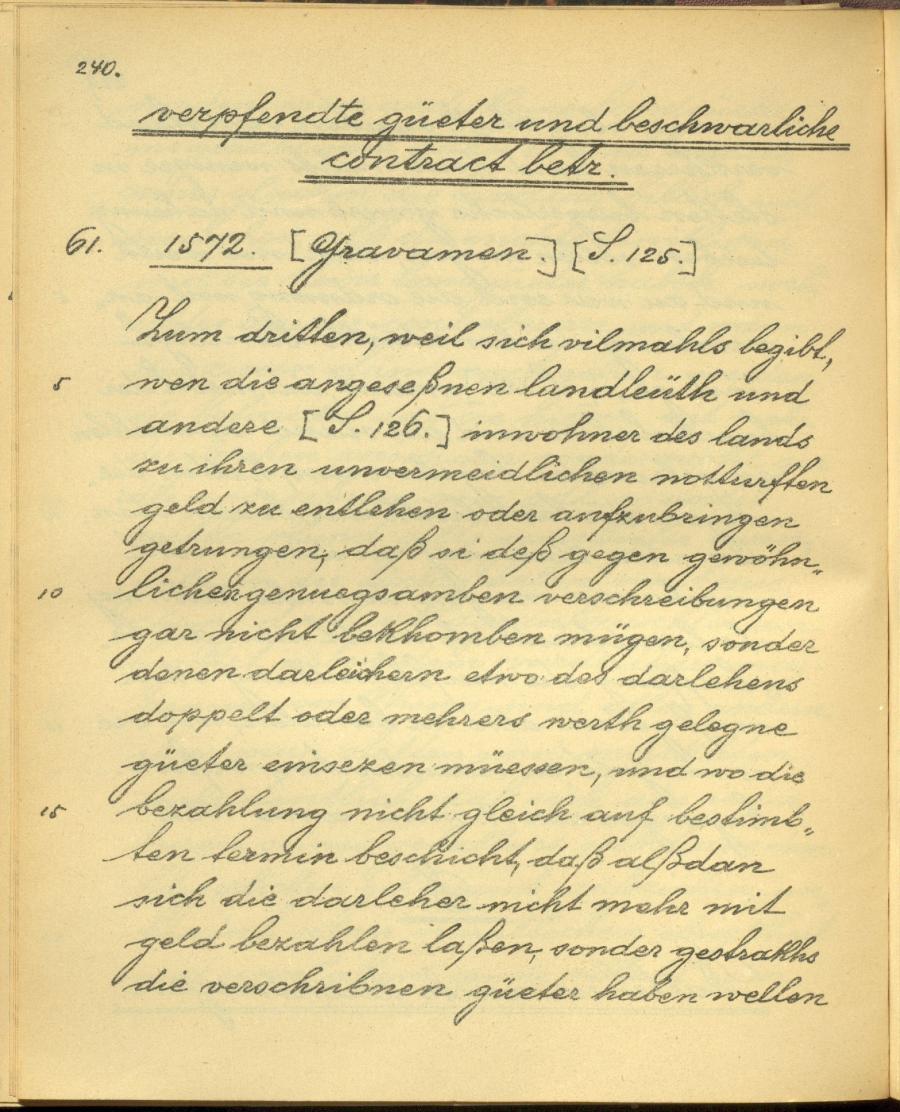 240.
verpfendte güeter und beschwarliche
contract betr.
61. 1572. [Gravamen.] [S. 125.]
Zum dritten, weil sich vilmahls begibt,
5 wen die angeseßnen landleüth und
andere [S. 126.] inwohner des lands
zu ihren unvermeidlichen notturften
geld zu entlehen oder aufzubringen
getrungen, daß si deß gegen gewöhn„
10 lichen genuegsamben verschreibungen
gar nicht bekhomben mügen, sonder
denen darleichern etwo des darlehens
doppelt oder mehrers werth gelegne
güeter einsezen müessen, und wo die
15 bezahlung nicht gleich auf bestimb„
ten termin beschicht, daß alßdan
sich die darleher nicht mehr mit
geld bezahlen laßen, sonder gestrakhs
die verschribnen güeter haben wellen